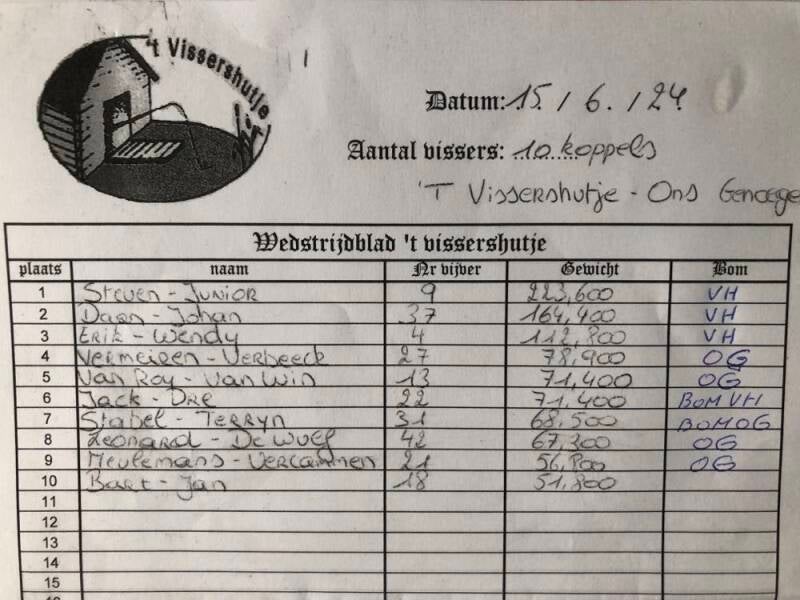 't Vissershutje
Datum: 15 / 6 / 24
Aantal vissers: 10 koppels
'T Vissershutje - Ons Genoege
Wedstrijdblad 't vissershutje
plaats naam Nr vijver Gewicht Bom
1 Steven - Junior 9 223,600 VH
2 Daan - Johan 37 164,400 VH
3 Erik - Wendy 4 112,800 VH
4 Vermeiren - Verbeeck 27 78,900 OG
5 Van Roy - Van Win 13 71,400 OG
6 Jack - Dre 22 71,400 BOM VH
7 Stabel - Terryn 31 68,500 BOM OG
8 Leonard - De Wulf 42 67,300 OG
9 Meulemans - Vercammen 21 56,800 OG
10 Bart - Jan 18 51,800
11
12
13
14
15